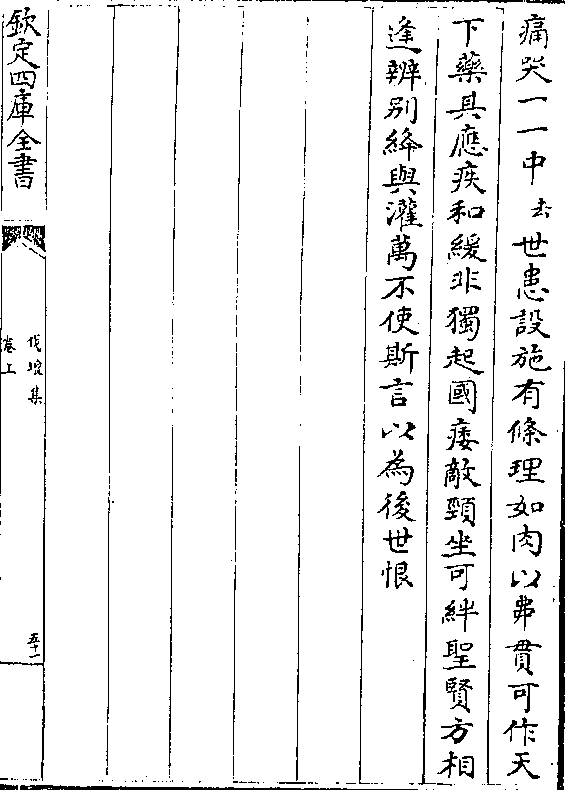 痛哭一一中去世患設施有條理如肉以弗貫可作天
下藥具應疾和緩非獨起國痿敵頸坐可絆聖賢方相
逢辨别絳與灌萬不使斯言以為後世恨
欽定四庫全書
伐檀集
卷上
五十一